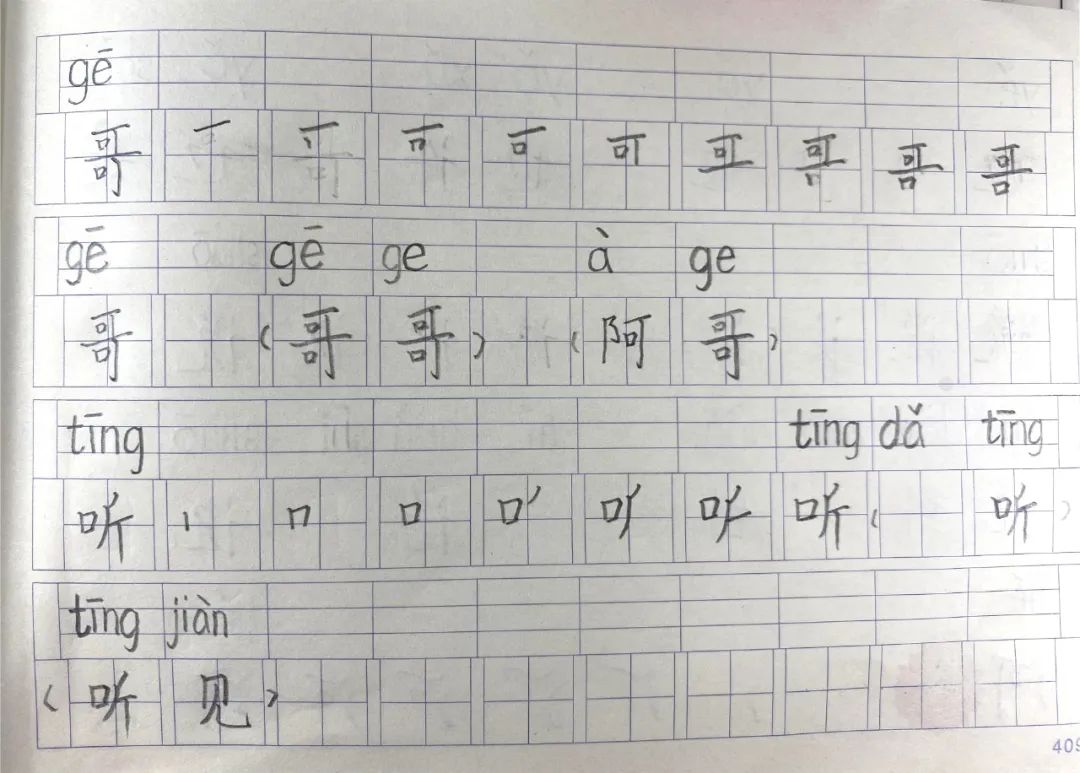 gē
哥 一 可
gē gē ge à ge
哥 (哥 哥) (阿 哥)
tīng tīng dǎ tīng
听 丨 冂 口 听 ( 听)
tīng jiàn
(听 见)
409